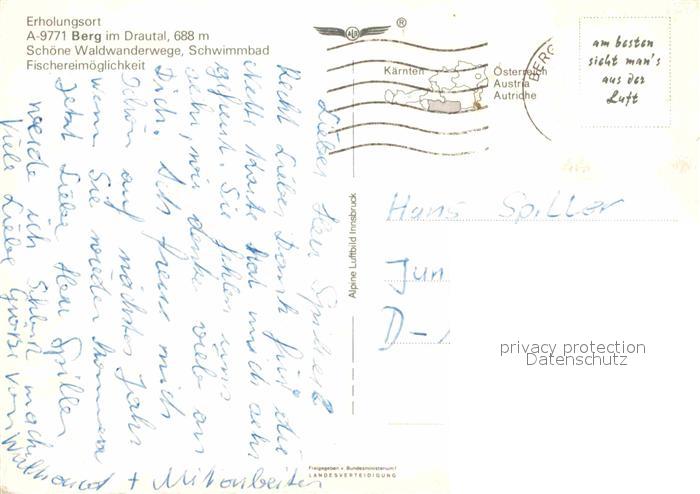 Erholungsort
A-9771 Berg im Drautal, 688 m
Schöne Waldwanderwege, Schwimmbad
Fischereimöglichkeit
®
Kärnten
Österreich
Austria
Autriche
BERG
am besten
sieht man's
aus der
Luft
Lieber Herr Spiller
Recht Lieben Dank für die
Nette Karte hat mich sehr
gefreut. Sie fehlen uns
sehr, wir denke viel an
Dich. Ich freue mich
schon auf nächstes Jahr
wenn Sie wieder kommen
Jetzt Liebe Herr Spiller
werde ich Schluß machen
Viele Liebe Grüße von
Waltraud + Mitarbeiter
Alpine Luftbild Innsbruck
Hans Spiller
Jun
D-
privacy protection
Datenschutz
Freigegeben v. Bundesministerium f.
LANDESVERTEIDIGUNG